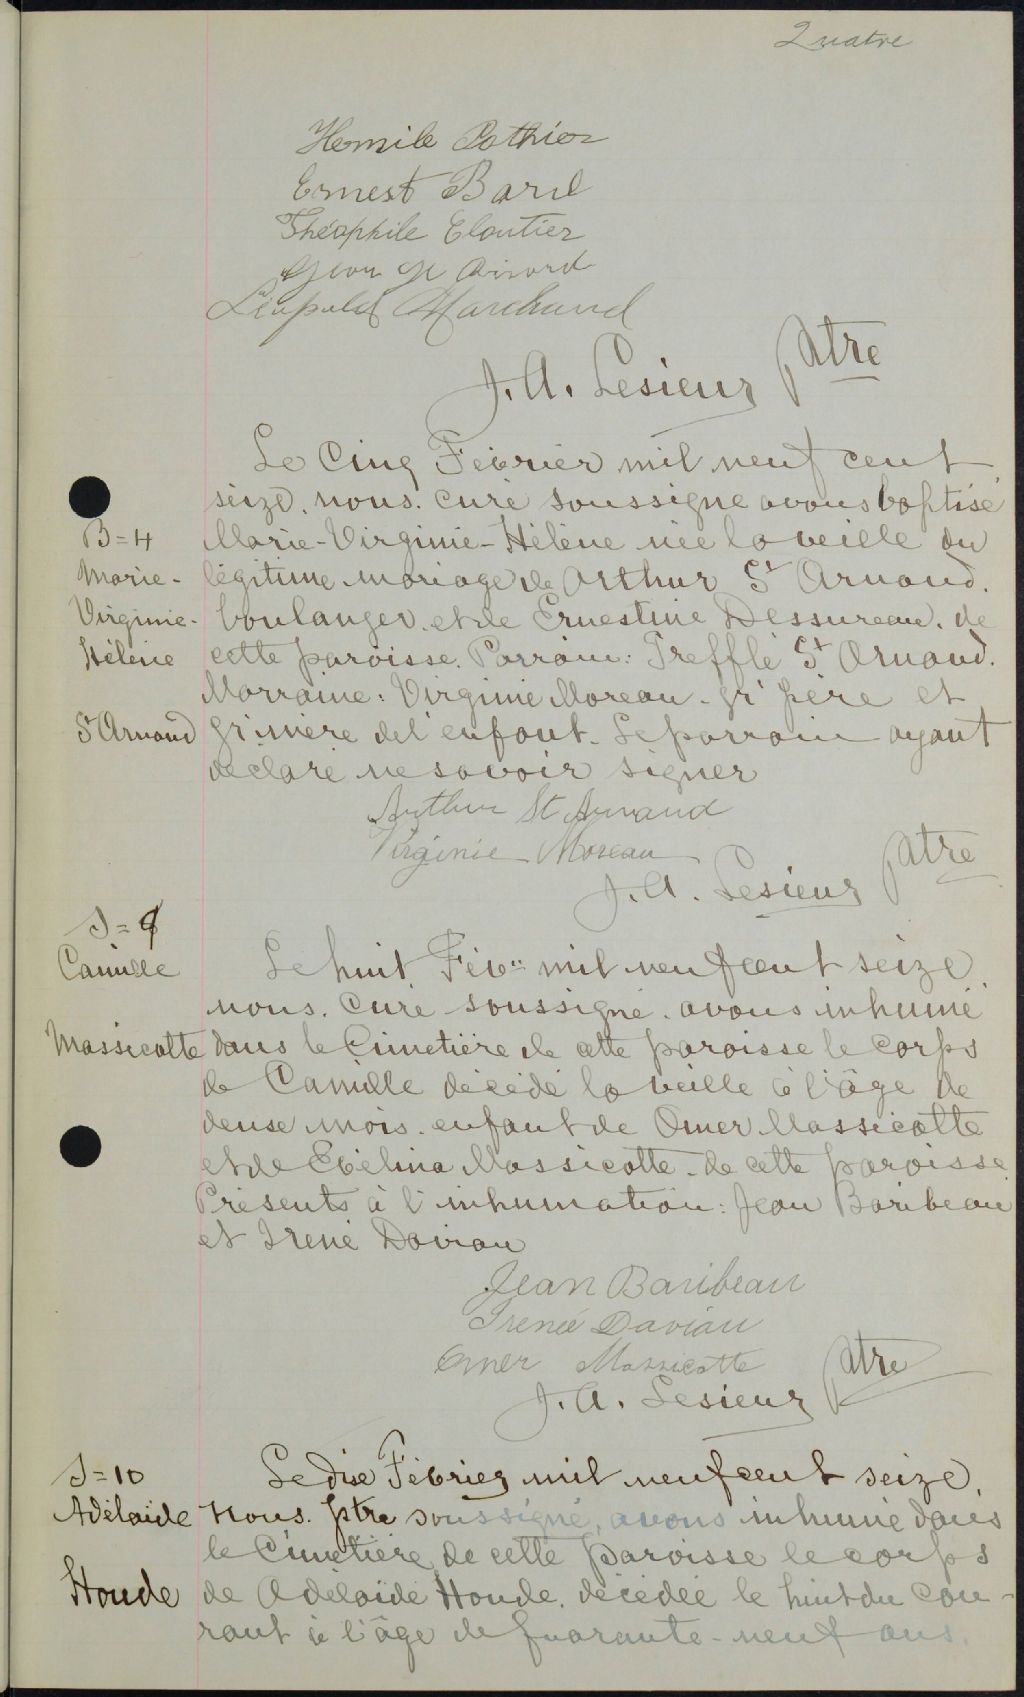 Quatre
Hemile Pothier
Ernest Baril
Théophile Cloutier
Léopold Marchand
J. A. Lesieur Ptre
Le Cinq Février mil neuf cent
seize, nous, curé soussigné avons baptisé
B=4
Marie-Virginie-Hélène née la veille du
Marie-
légitime mariage de Arthur St Arnaud,
Virginie-
boulanger, et de Ernestine Dessureau, de
Hélène
cette paroisse. Parrain: Trefflé St Arnaud.
Marraine: Virginie Moreau, gr père et
St Arnaud
gr mère de l'enfant. Le parrain ayant
déclaré ne savoir signer
Arthur St Arnaud
Virginie Moreau
J. A. Lesieur Ptre
S=9
Camille
Le huit Fév. mil neuf cent seize,
nous, curé soussigné, avons inhumé
Massicotte
dans le Cimetière de cette paroisse le corps
de Camille décédé la veille à l'âge de
deux mois, enfant de Omer Massicotte
et de Evélina Massicotte, de cette paroisse
Présents à l'inhumation: Jean Baribeau
et Irené Davian
Jean Baribeau
Irenée Daviau
Omer Massicotte
J. A. Lesieur Ptre
S=10
Le dix Février mil neuf cent seize,
Adélaïde
nous, ptre soussigné, avons inhumé dans
le Cimetière de cette paroisse le corps
Houde
de Adélaïde Houde, décédée le huit du cou-
rant à l'âge de quarante-neuf ans,